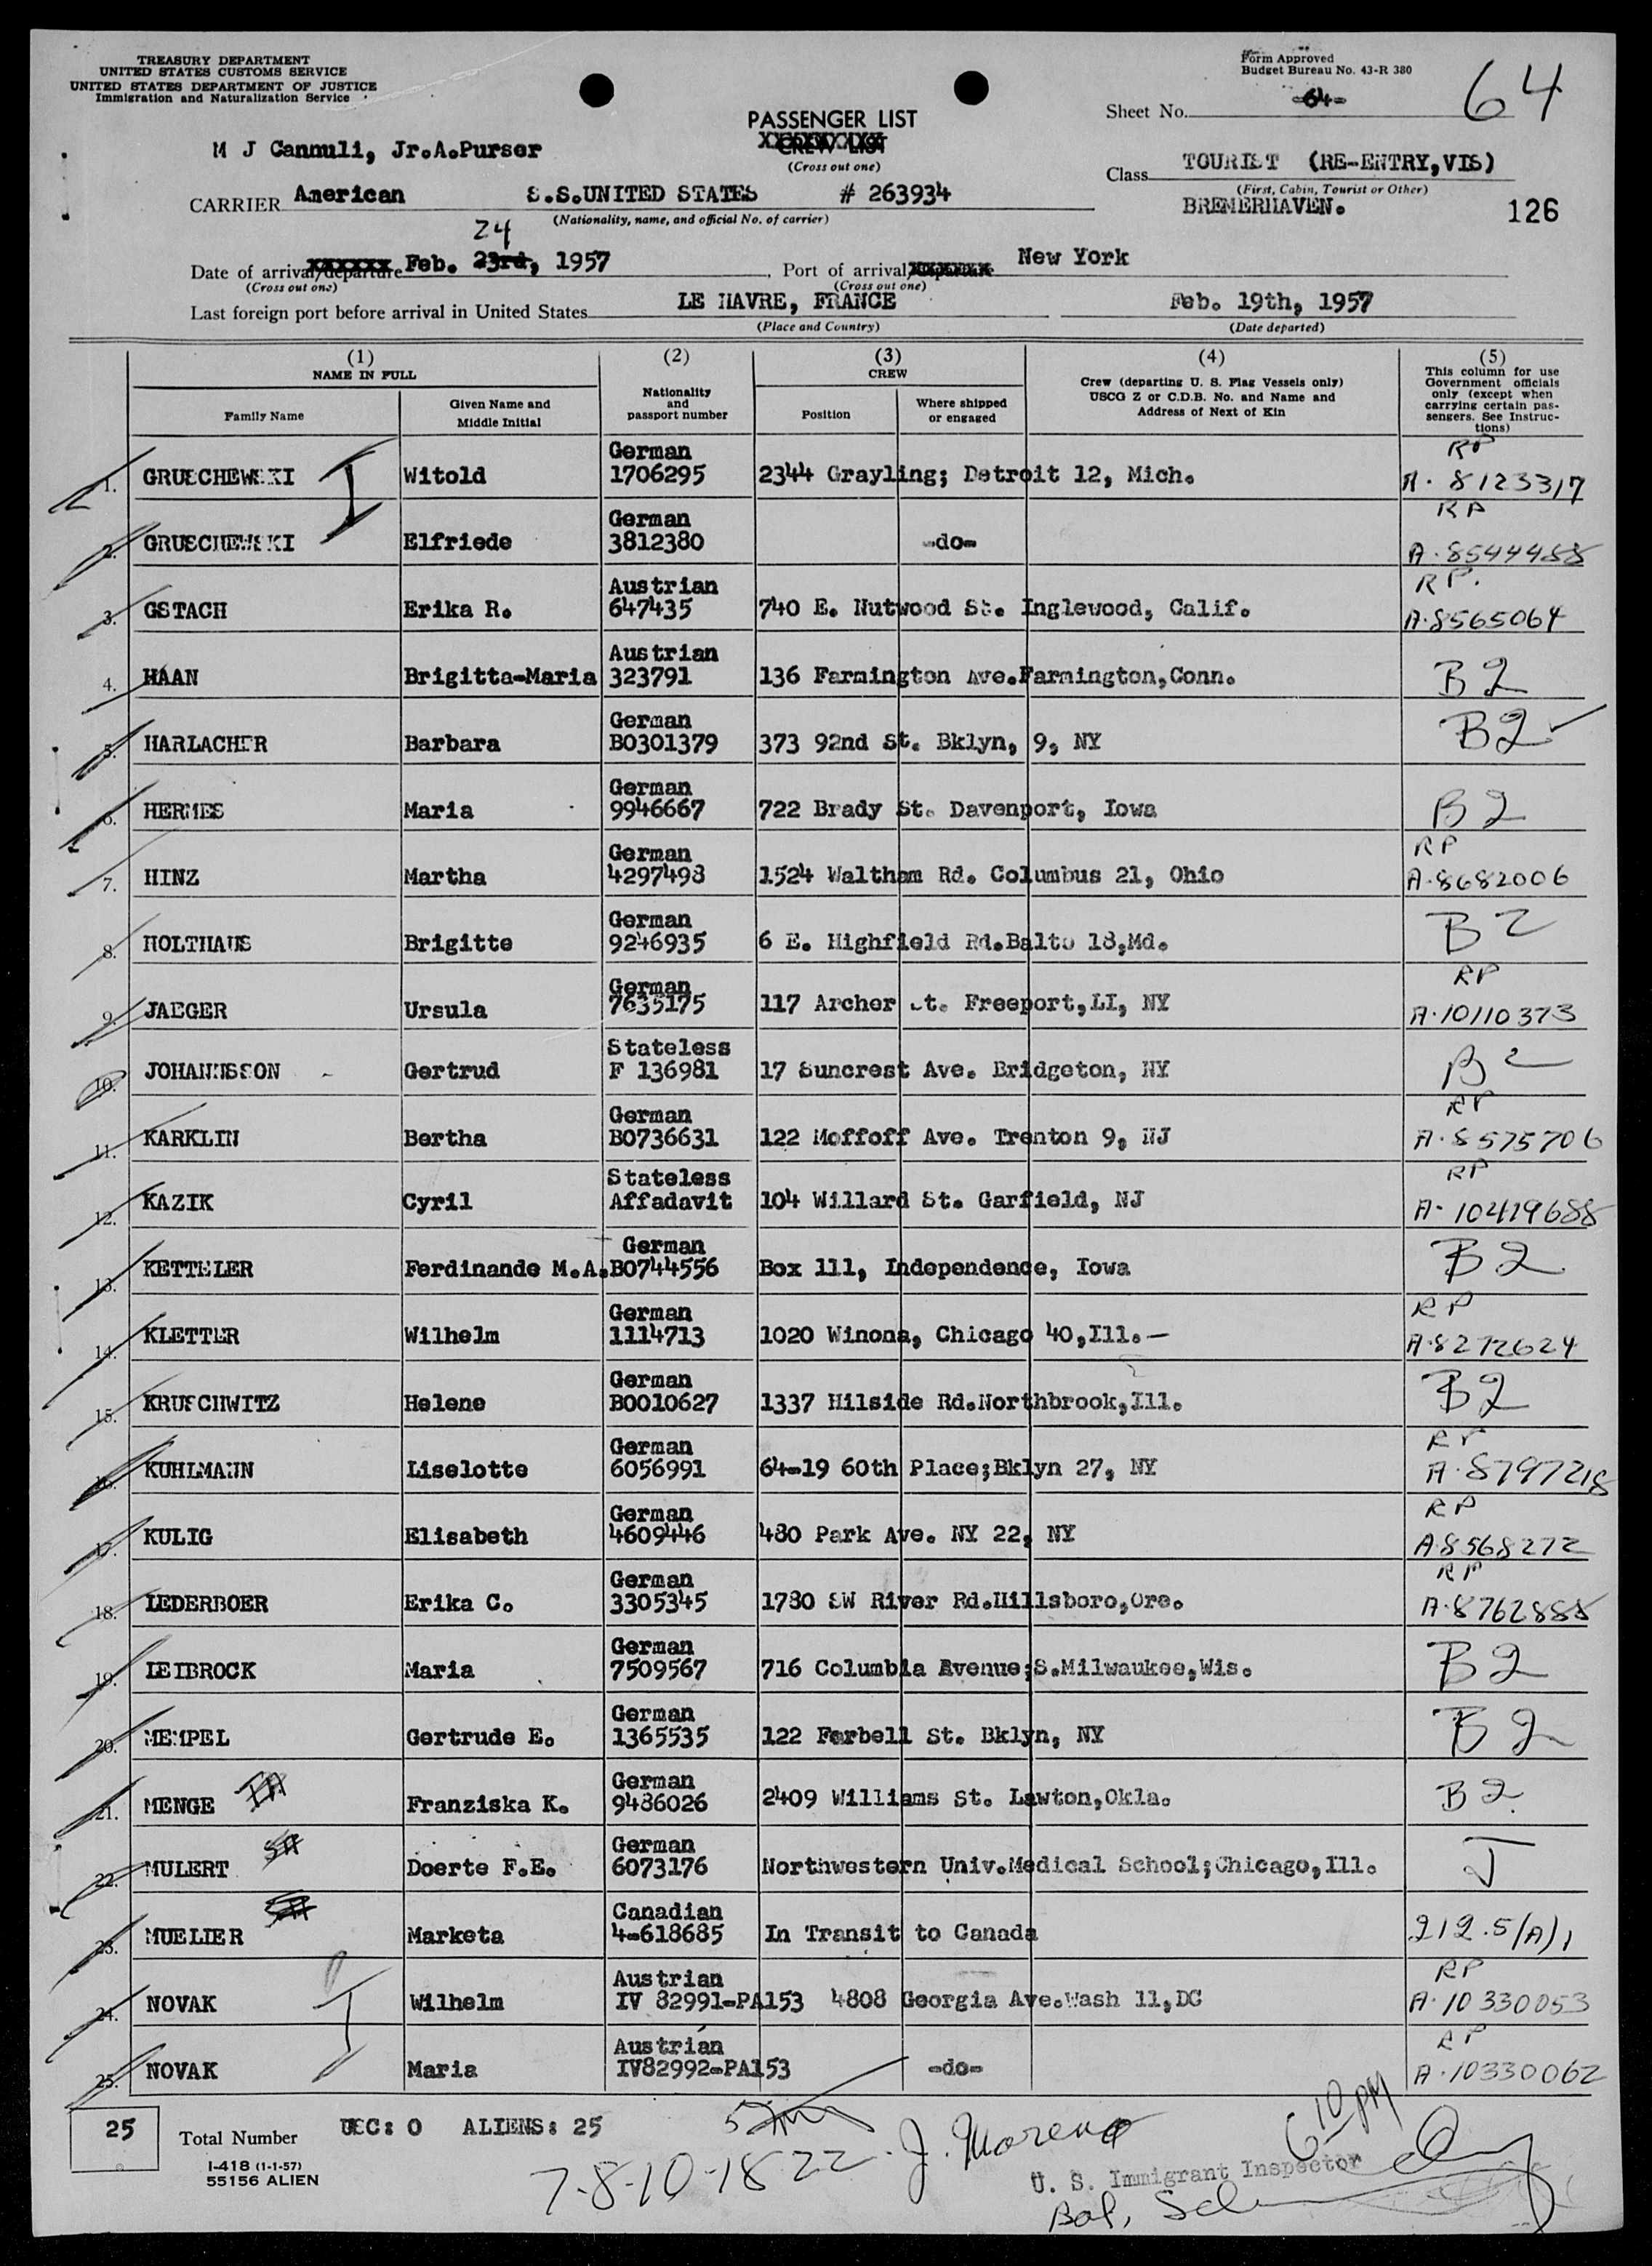 TREASURY DEPARTMENT
UNITED STATES CUSTOMS SERVICE
UNITED STATES DEPARTMENT OF JUSTICE
Immigration and Naturalization Service
Form Approved
Budget Bureau No. 43-R 380
64
Sheet No. 64
PASSENGER LIST
CREW LIST
(Cross out one)
M J Cannuli, Jr.A.Purser
Class TOURIST (RE-ENTRY,VIS)
(First, Cabin, Tourist or Other)
CARRIER American S.S.UNITED STATES # 263934
(Nationality, name, and official No. of carrier)
BREMERHAVEN. 126
24
Date of arrival/departure Feb. 23rd, 1957 Port of arrival New York
(Cross out one) (Cross out one)
Last foreign port before arrival in United States LE HAVRE, FRANCE Feb. 19th, 1957
(Place and Country) (Date departed)
(1) (2) (3) (4) (5)
NAME IN FULL
Family Name
Given Name and Middle Initial
Nationality and passport number
CREW
Position
Where shipped or engaged
Crew (departing U. S. Flag Vessels only)
USCG Z or C.D.B. No. and Name and
Address of Next of Kin
This column for use
Government officials
only (except when
carrying certain pas-
sengers. See Instruc-
tions)
German RP
1. GRUSCHEWSKI Witold 1706295 2344 Grayling; Detroit 12, Mich. A. 8123317
German RP
2. GRUSCHEWSKI Elfriede 3812380 -do- A.8544488
Austrian RP.
3. GSTACH Erika R. 647435 740 E. Nutwood St. Inglewood, Calif. A.8565064
Austrian
4. HAAN Brigitta-Maria 323791 136 Farmington Ave.Farmington,Conn. B2
German
5. HARLACHER Barbara B0301379 373 92nd St. Bklyn, 9, NY B2
German
6. HERMES Maria 9946667 722 Brady St. Davenport, Iowa B2
German RP
7. HINZ Martha 4297498 1524 Waltham Rd. Columbus 21, Ohio A.8682006
German
8. HOLTHAUS Brigitte 9246935 6 E. Highfield Rd.Balto 18,Md. B2
German RP
9. JAEGER Ursula 7635175 117 Archer St. Freeport,LI, NY A.10110373
Stateless
10. JOHANNSSON Gertrud F 136981 17 Suncrest Ave. Bridgeton, NY B2
German RP
11. KARKLIN Bertha B0736631 122 Moffoff Ave. Trenton 9, NJ A.8575706
Stateless RP
12. KAZIK Cyril Affadavit 104 Willard St. Garfield, NJ A. 10419688
German
13. KETTELER Ferdinande M.A. B0744556 Box 111, Independence, Iowa B2
German RP
14. KLETTER Wilhelm 1114713 1020 Winona, Chicago 40,Ill.— A.8272624
German
15. KRUSCHWITZ Helene B0010627 1337 Hilside Rd.Northbrook,Ill. B2
German RP
16. KUHLMANN Liselotte 6056991 64-19 60th Place;Bklyn 27, NY A.8797218
German RP
17. KULIG Elisabeth 4609446 480 Park Ave. NY 22, NY A.8568272
German RP
18. LEDERBOER Erika C. 3305345 1780 SW River Rd.Hillsboro,Ore. A.8762888
German
19. LEIBROCK Maria 7509567 716 Columbia Avenue;S.Milwaukee,Wis. B2
German
20. MEMPEL Gertrude E. 1365535 122 Farbell St. Bklyn, NY B2
German
21. MENGE Franziska K. 9486026 2409 Williams St. Lawton,Okla. B2
German
22. MULERT Doerte F.E. 6073176 Northwestern Univ.Medical School;Chicago,Ill. J
Canadian
23. MUELLER Marketa 4-618685 In Transit to Canada 212.5/(A)1
Austrian RP
24. NOVAK Wilhelm IV 82991-PA153 4808 Georgia Ave.Wash 11,DC A.10330053
Austrian RP
25. NOVAK Maria IV82992-PA153 -do- A.10330062
25 Total Number USC: 0 ALIENS: 25
I-418 (1-1-57)
55156 ALIEN
7-8-10-18 22
J. Moreno
6 10 PM
U. S. Immigrant Inspector